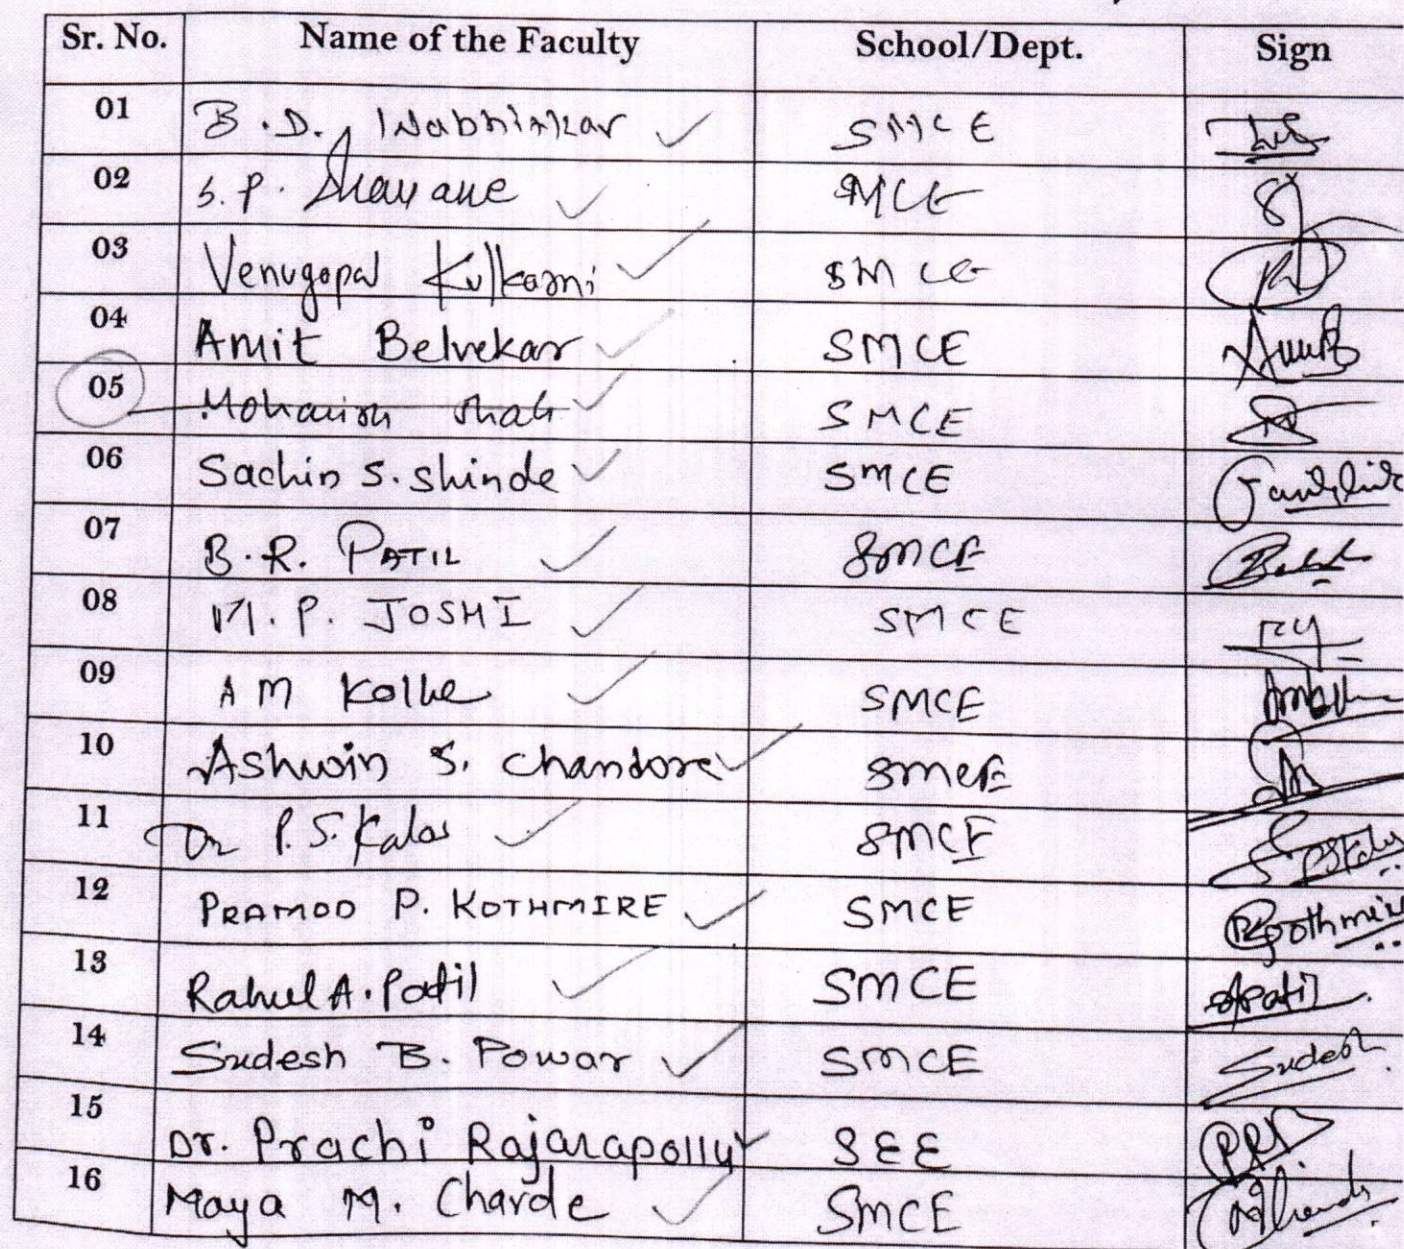 Sr. No. Name of the Faculty School/Dept. Sign
01 B.D. Nabhinkar SMCE
02 S.P. SMCE
03 Venugopal Kulkarni SMCE
04 Amit Belvekar SMCE AmitB
05 Shah SMCE
06 Sachin S. Shinde SMCE
07 B.R. PATIL SMCE
08 M.P. JOSHI SMCE
09 A M Kolhe SMCE
10 Ashwin S. Chandore SMCE
11 Dr P.S. Kalos SMCE
12 PRAMOD P. KOTHMIRE SMCE Kothmire
13 Rahul A. Patil SMCE Patil
14 Sudesh B. Powar SMCE Sudesh
15 Dr. Prachi Rajarapolly SEE
16 Maya M. Charde SMCE